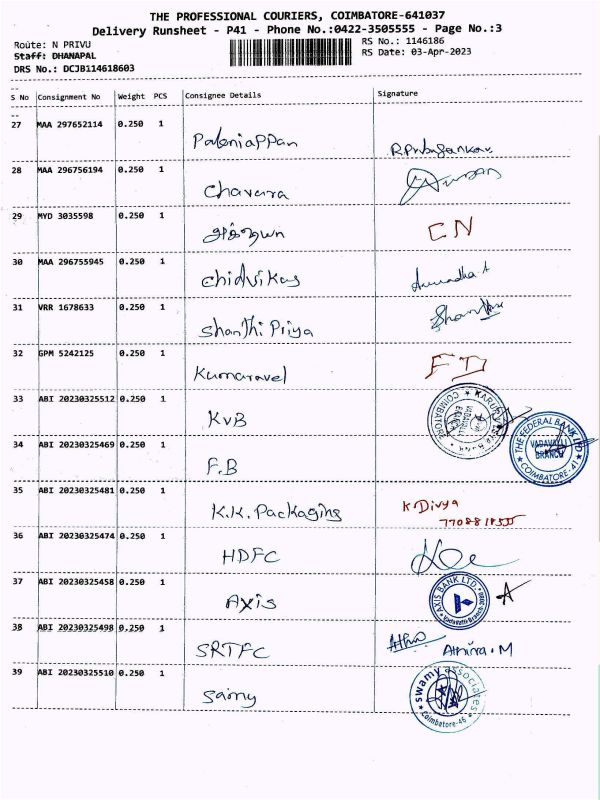 THE PROFESSIONAL COURIERS, COIMBATORE-641037
Delivery Runsheet - P41 - Phone No.:0422-3505555 - Page No.:3
Route: N PRIVU
RS No.: 1146186
Staff: DHANAPAL
RS Date: 03-Apr-2023
DRS No.: DCJB114618603
S No Consignment No Weight PCS Consignee Details Signature
27 MAA 297652114 0.250 1 PalaniaPPan
28 MAA 296756194 0.250 1
29 MYD 3035598 0.250 1 CN
30 MAA 296755945 0.250 1 Chidvikas Anuradha A
31 VRR 1678633 0.250 1 ShanThi Priya
32 GPM 5242125 0.250 1 Kumaravel FD
33 ABI 20230325512 0.250 1 KVB
COIMBATORE
34 ABI 20230325469 0.250 1 F.B
THE FEDERAL BANK LTD
VADAVALLI
BRANCH
COIMBATORE-41
35 ABI 20230325481 0.250 1 K.K. Packaging K.Divya
36 ABI 20230325474 0.250 1 HDFC
37 ABI 20230325458 0.250 1 AXIS
AXIS BANK LTD.
38 ABI 20230325498 0.250 1 SRTFC Athira.M
39 ABI 20230325510 0.250 1
swamy associates
Coimbatore-46